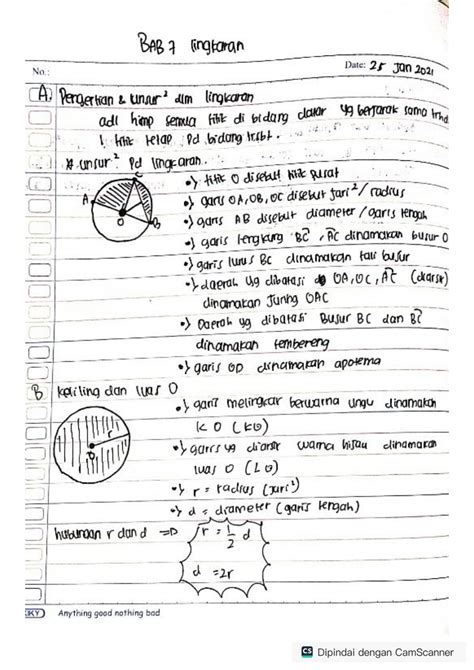 BAB 7 lingkaran
No.:
Date: 25 Jan 2021
A. Pengertian & unsur² dlm lingkaran
adl himp semua titik di bidang datar yg berjarak sama trhd
1 titik tetap pd bidang trsbt.
* unsur² pd lingkaran.
•) titik O disebut titik pusat
•) garis OA, OB, OC disebut jari² / radius
•) garis AB disebut diameter / garis tengah
•) garis lengkung BC, AC dinamakan busur O
•) garis lurus BC dinamakan tali busur
•) daerah yg dibatasi OA, OC, AC (diarsir)
dinamakan juring OAC
•) Daerah yg dibatasi Busur BC dan BC
dinamakan tembereng
•) garis OD dinamakan apotema
A
C
O
B
B keliling dan luas O
•) garis melingkar berwarna ungu dinamakan
K O (KO)
•) garis yg diarsir warna hijau dinamakan
luas O (LO)
•) r = radius (jari²)
•) d = diameter (garis tengah)
r
O
hubungan r dan d =D
r = 1/2 d
d = 2r
KY
Anything good nothing bad
CS Dipindai dengan CamScanner